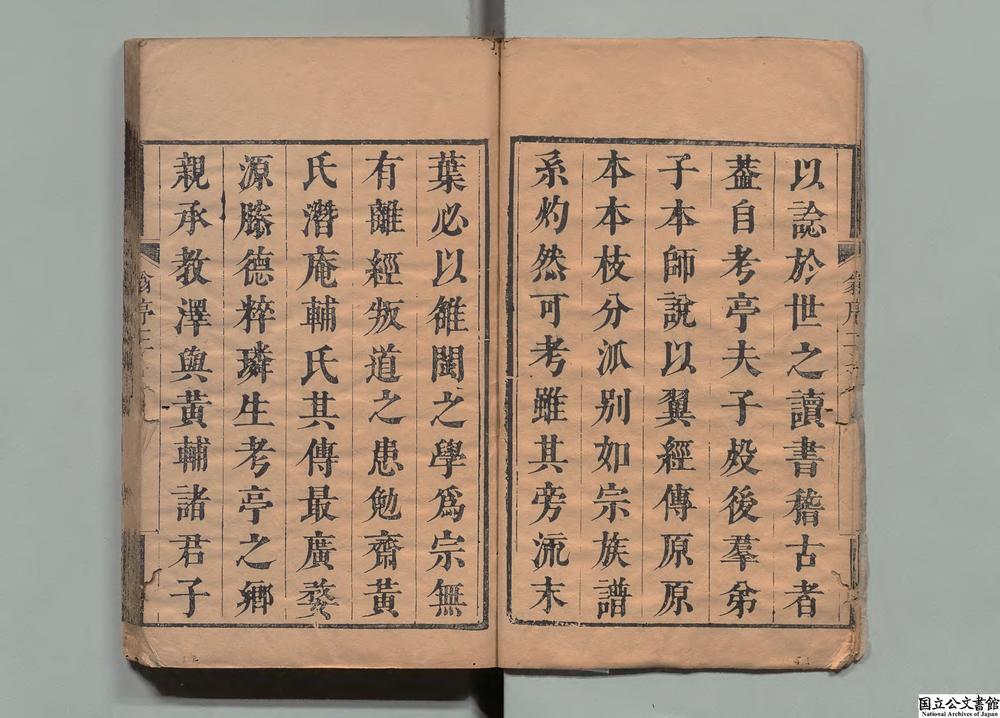 以諗於世之讀書稽古者
蓋自考亭夫子歿後羣弟
子本師說以翼經傳原原
本本枝分派別如宗族譜
系灼然可考雖其旁流末
葉必以雒閩之學爲宗無
有離經叛道之患勉齋黃
氏潛庵輔氏其傳最廣婺
源滕德粹璘生考亭之鄉
親承教澤與黃輔諸君子
国立公文書館
National Archives of Japan